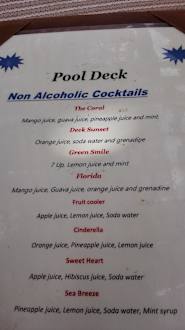 Pool Deck
Non Alcoholic Cocktails
The Coral
Mango juice, guava juice, pineapple juice and mint
Deck Sunset
Orange juice, soda water and grenadine
Green Smile
7 Up, Lemon juice and mint
Florida
Mango juice, Guava juice, orange juice and grenadine
Fruit cooler
Apple juice, Lemon juice, Soda water
Cinderella
Orange juice, Pineapple juice, Lemon juice
Sweet Heart
Apple juice, Hibiscus juice, Soda water
Sea Breeze
Pineapple juice, Lemon juice, Soda water, Mint syrup